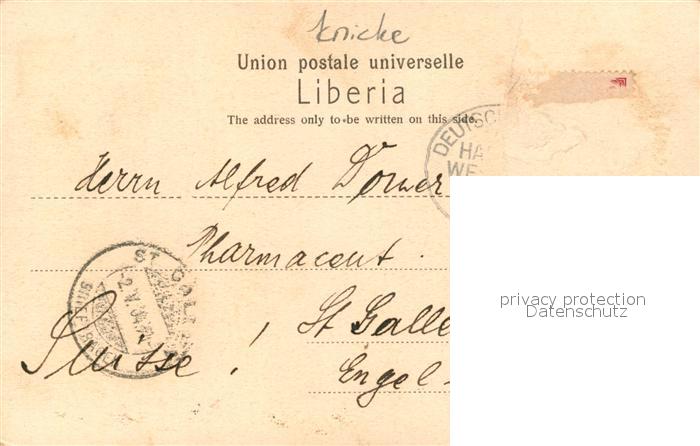 Knicke
Union postale universelle
Liberia
The address only to be written on this side.
DEUTSC
HA
WE
Herrn Alfred
Pharmaceut.
ST. GALL
2.V.04
St Galle
Suisse!
Engel-
privacy protection
Datenschutz